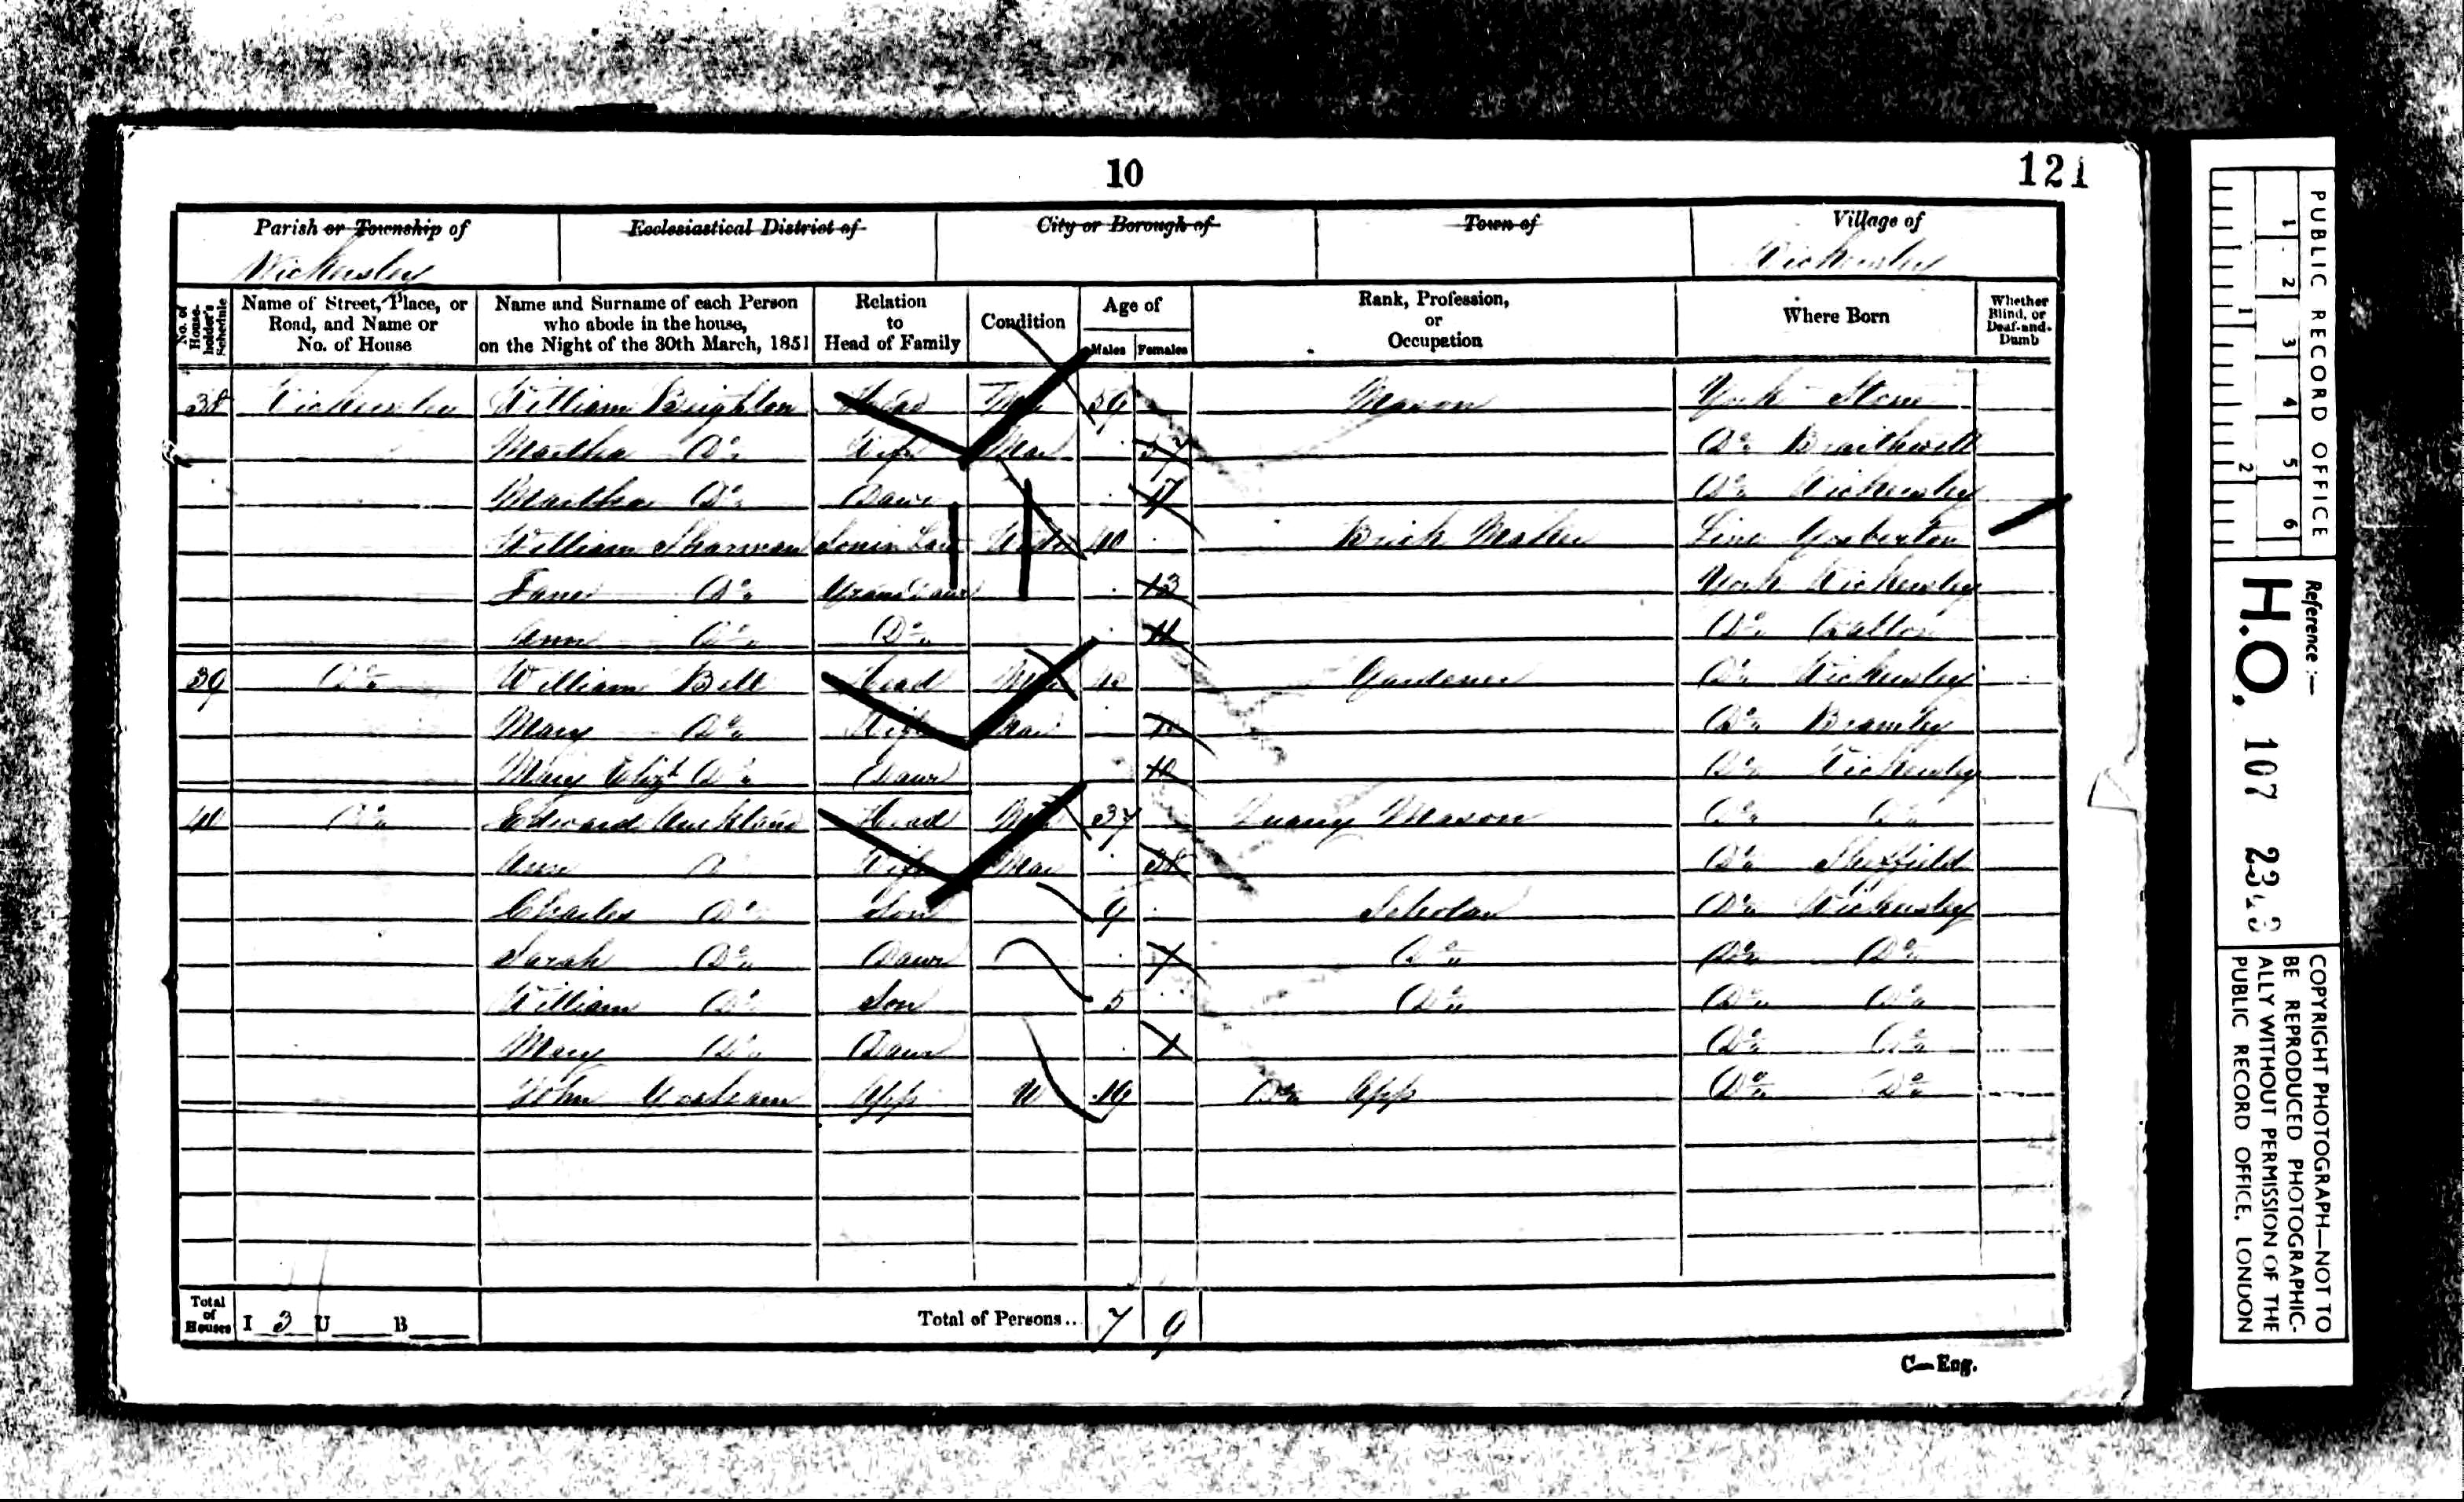 10
121
Parish or Township of
Ecclesiastical District of
City or Borough of
Town of
Village of
Wickersley
Wickersley
No. of House-holder's Schedule
Name of Street, Place, or Road, and Name or No. of House
Name and Surname of each Person who abode in the house, on the Night of the 30th March, 1851
Relation to Head of Family
Condition
Age of
Males
Females
Rank, Profession, or Occupation
Where Born
Whether Blind, or Deaf-and-Dumb
38 Wickersley William Beighton Head Mar 59 Mason York
Martha Do Wife Mar 57 Do Braithwell
Martha Do Daur 17 Do Wickersley
William Sharman Son in Law 40 Brick Maker Linc Gosberton
Jane Do Grand Daur 13 York Wickersley
Ann Do Do 11 Do
39 Do William Bell Head Mar Gardener Do Wickersley
Mary Do Wife Mar Do Bramley
Mary Elizt Do Daur Do Wickersley
40 Do Edward Auckland Head Mar 37 Quarry Mason Do Do
Ann Do Wife Mar 38 Do Sheffield
Charles Do Son 9 Scholar Do Wickersley
Sarah Do Daur Do Do Do
William Do Son 5 Do Do Do
Mary Do Daur Do Do
John App U 19 Do App Do Do
Total of Houses
I 3 U B
Total of Persons..
7
9
C—Eng.
PUBLIC RECORD OFFICE
1 2 3 4 5 6
1 2
Reference :—
H.O. 107 2343
COPYRIGHT PHOTOGRAPH—NOT TO
BE REPRODUCED PHOTOGRAPHIC-
ALLY WITHOUT PERMISSION OF THE
PUBLIC RECORD OFFICE, LONDON